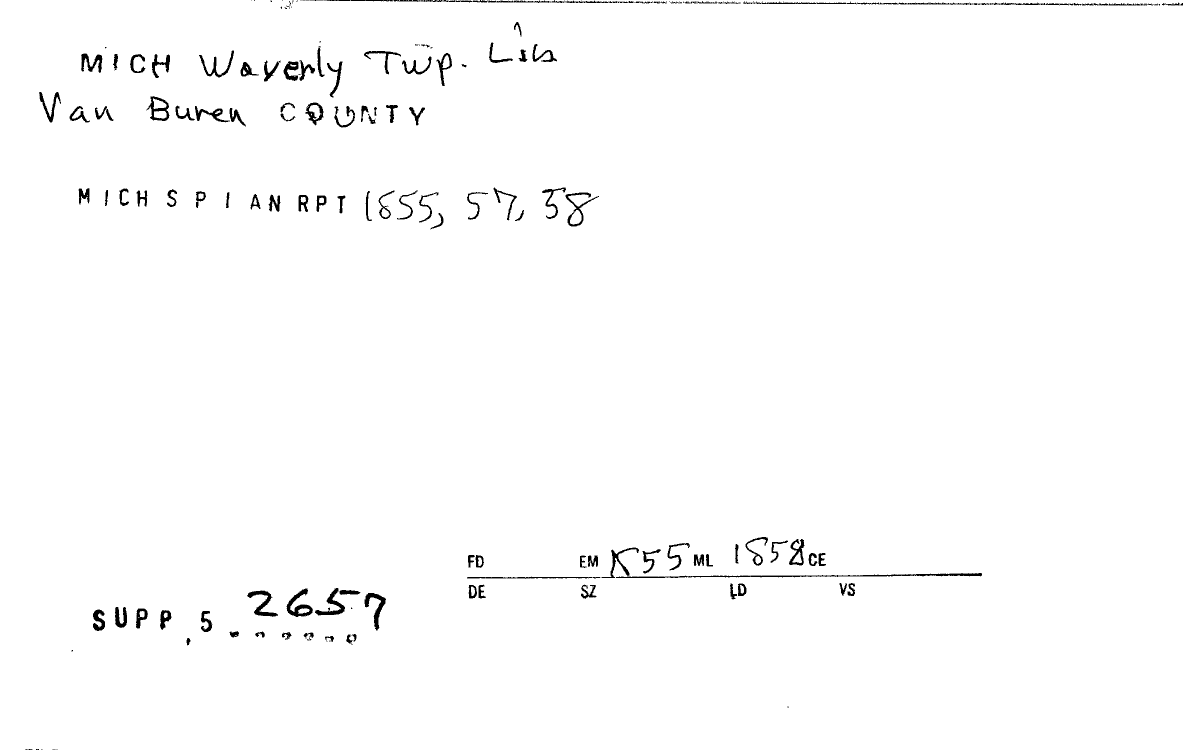 MICH Waverly Twp. Lib
Van Buren COUNTY
MICH S P I AN RPT 1855, 57, 58
FD EM 1855 ML 1858 CE
DE SZ LD VS
SUPP, 5 2657